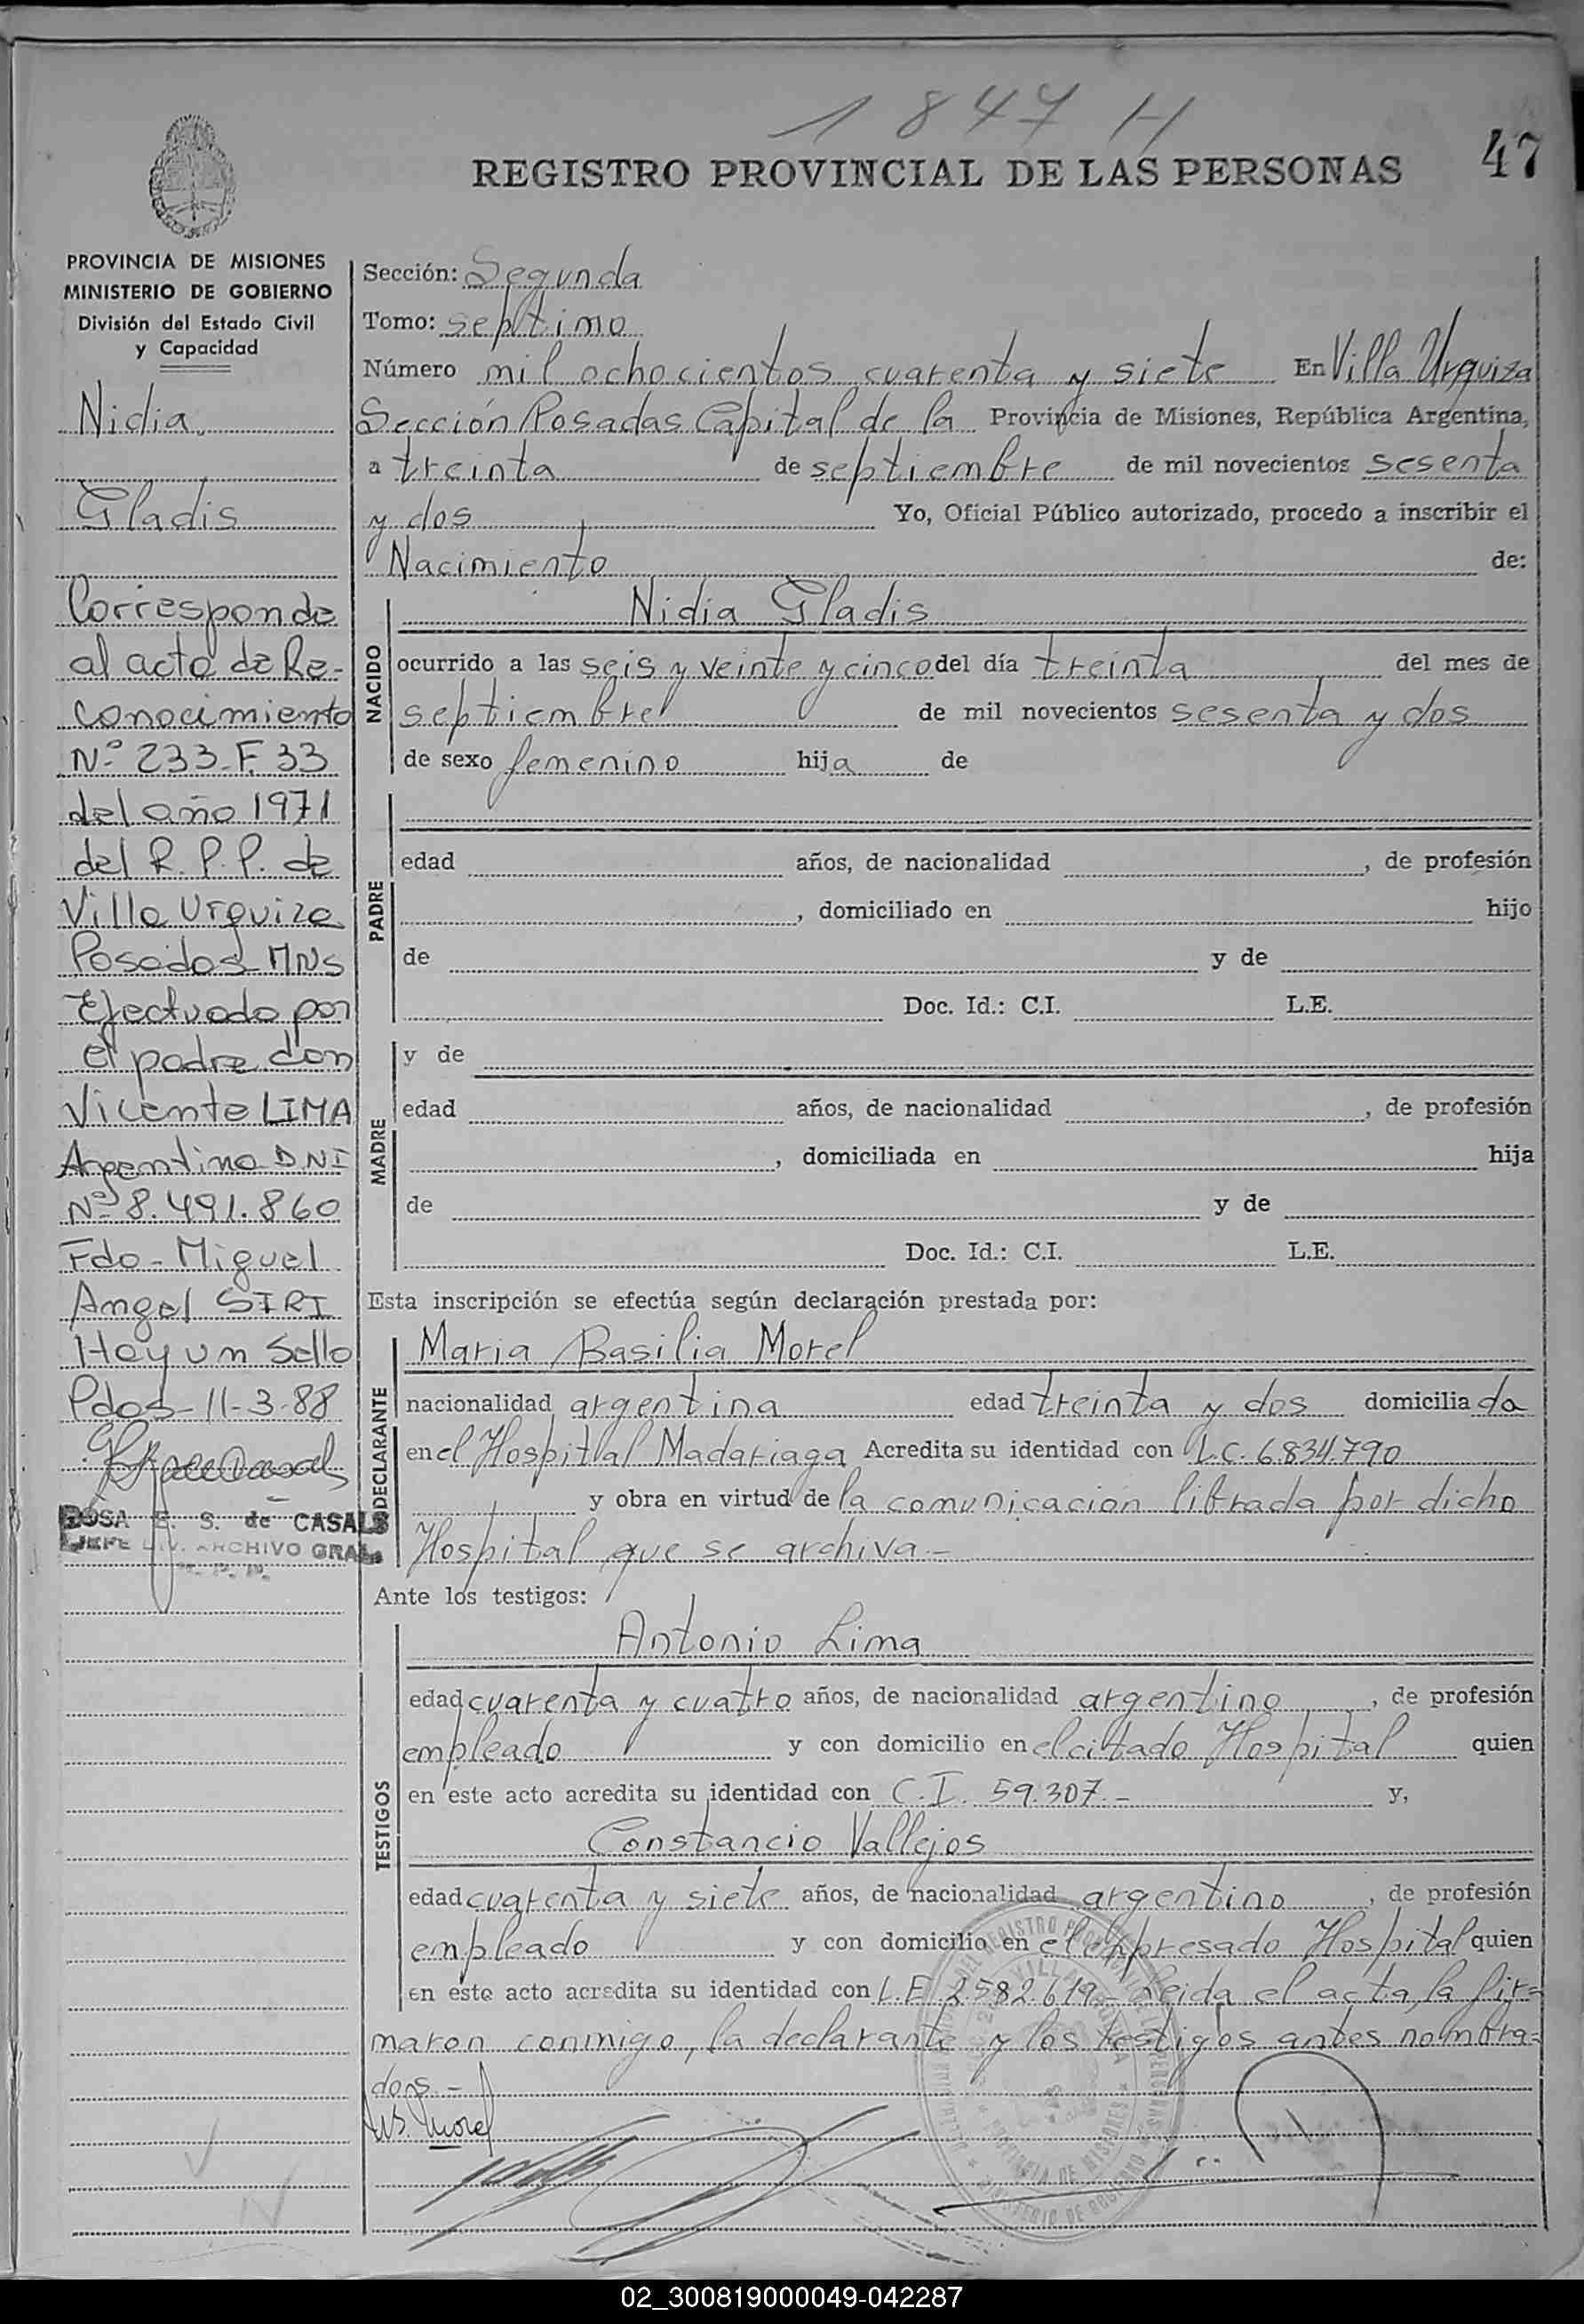 1847 H
REGISTRO PROVINCIAL DE LAS PERSONAS 47
PROVINCIA DE MISIONES
MINISTERIO DE GOBIERNO
División del Estado Civil
y Capacidad
Nidia
Gladis
Corresponde
al acto de Re-
conocimiento
Nº 233-F. 33
del año 1971
del R. P. P. de
Villa Urquiza
Posadas MNS
Efectuado por
el padre don
Vicente LIMA
Argentino DNI
Nº 8.491.860
Fdo- Miguel
Angel SIRI
Hay un Sello
Pdas- 11-3-88
ROSA E. S. de CASALS
JEFE DIV. ARCHIVO GRAL.
Sección: Segunda
Tomo: septimo
Número mil ochocientos cuarenta y siete En Villa Urquiza
Sección Posadas Capital de la Provincia de Misiones, República Argentina,
a treinta de septiembre de mil novecientos sesenta
y dos Yo, Oficial Público autorizado, procedo a inscribir el
Nacimiento de:
NACIDO
Nidia Gladis
ocurrido a las seis y veinte y cinco del día treinta del mes de
septiembre de mil novecientos sesenta y dos
de sexo femenino hija de
PADRE
edad años, de nacionalidad , de profesión
, domiciliado en hijo
de y de
Doc. Id.: C.I. L.E.
MADRE
y de
edad años, de nacionalidad , de profesión
, domiciliada en hija
de y de
Doc. Id.: C.I. L.E.
Esta inscripción se efectúa según declaración prestada por:
DECLARANTE
Maria Basilia Morel
nacionalidad argentina edad treinta y dos domiciliada
en el Hospital Madariaga Acredita su identidad con L.C. 6.834.790
y obra en virtud de la comunicación librada por dicho
Hospital que se archiva.-
Ante los testigos:
TESTIGOS
Antonio Lima
edad cuarenta y cuatro años, de nacionalidad argentino , de profesión
empleado y con domicilio en el citado Hospital quien
en este acto acredita su identidad con C.I. 59.307.- y,
Constancio Vallejos
edad cuarenta y siete años, de nacionalidad argentino , de profesión
empleado y con domicilio en el expresado Hospital quien
en este acto acredita su identidad con L.E. 2.582.619- Leida el acta, la fir=
maron conmigo, la declarante y los testigos antes nombra=
dos.-
MB. Morel
02_300819000049-042287